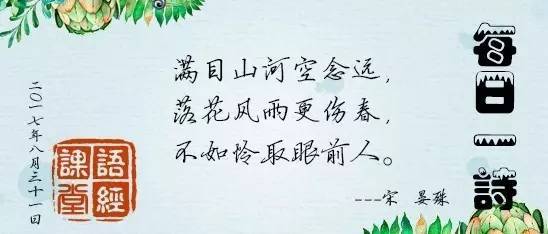 每日一詩
满目山河空念远，
落花风雨更伤春，
不如怜取眼前人。
---宋 晏殊
二〇一七年八月三十一日
語經
課堂